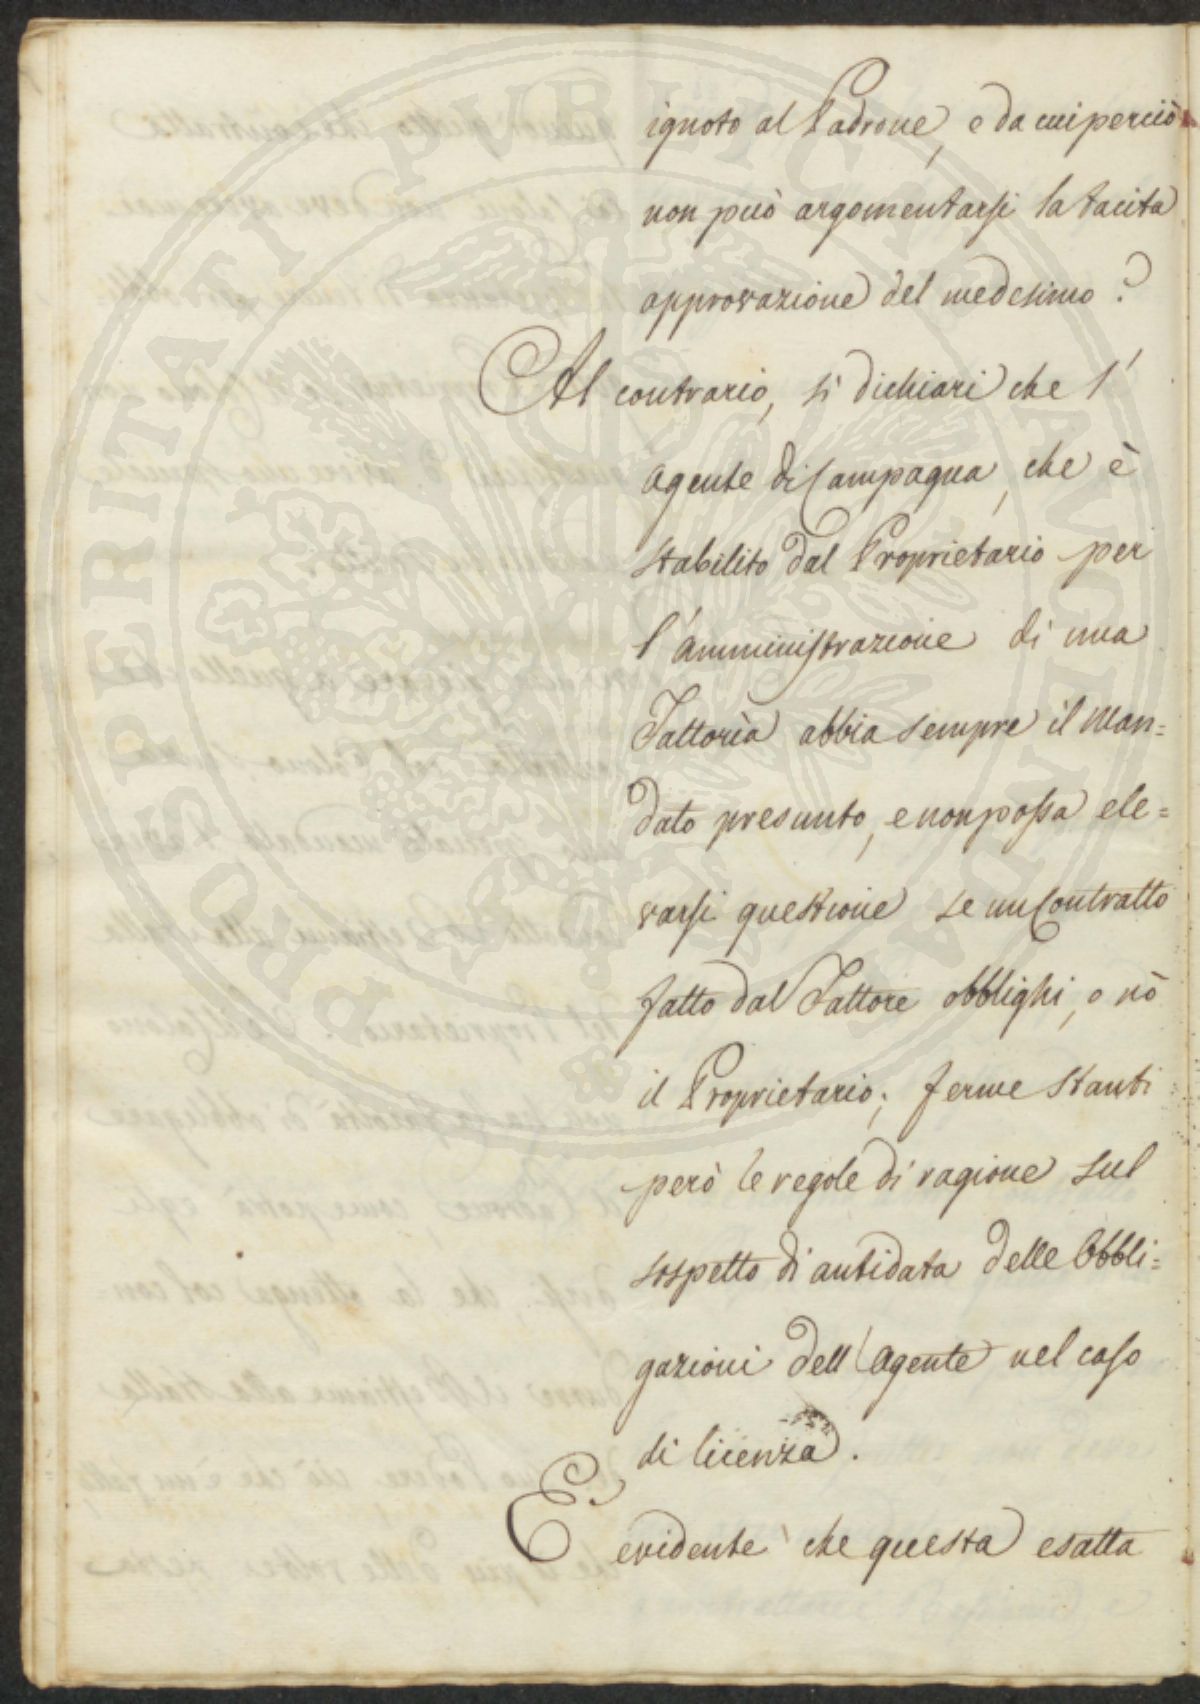 ignoto al Padrone, e da cui perciò
non può argomentarsi la tacita
approvazione del medesimo?
Al contrario, si dichiari che l'
Agente di Campagna, che è
stabilito dal Proprietario per
l'Amministrazione di una
Fattorìa abbia sempre il Man=
dato presunto, e non possa ele=
varsi questione se un Contratto
fatto dal Fattore obblighi, o nò
il Proprietario; ferme stanti
però le regole di ragione sul
sospetto di antidata delle Obbli=
gazioni dell'Agente nel caso
di licenza.
E' evidente che questa esatta
PROSPERITATI PUBLICAE AUGENDAE